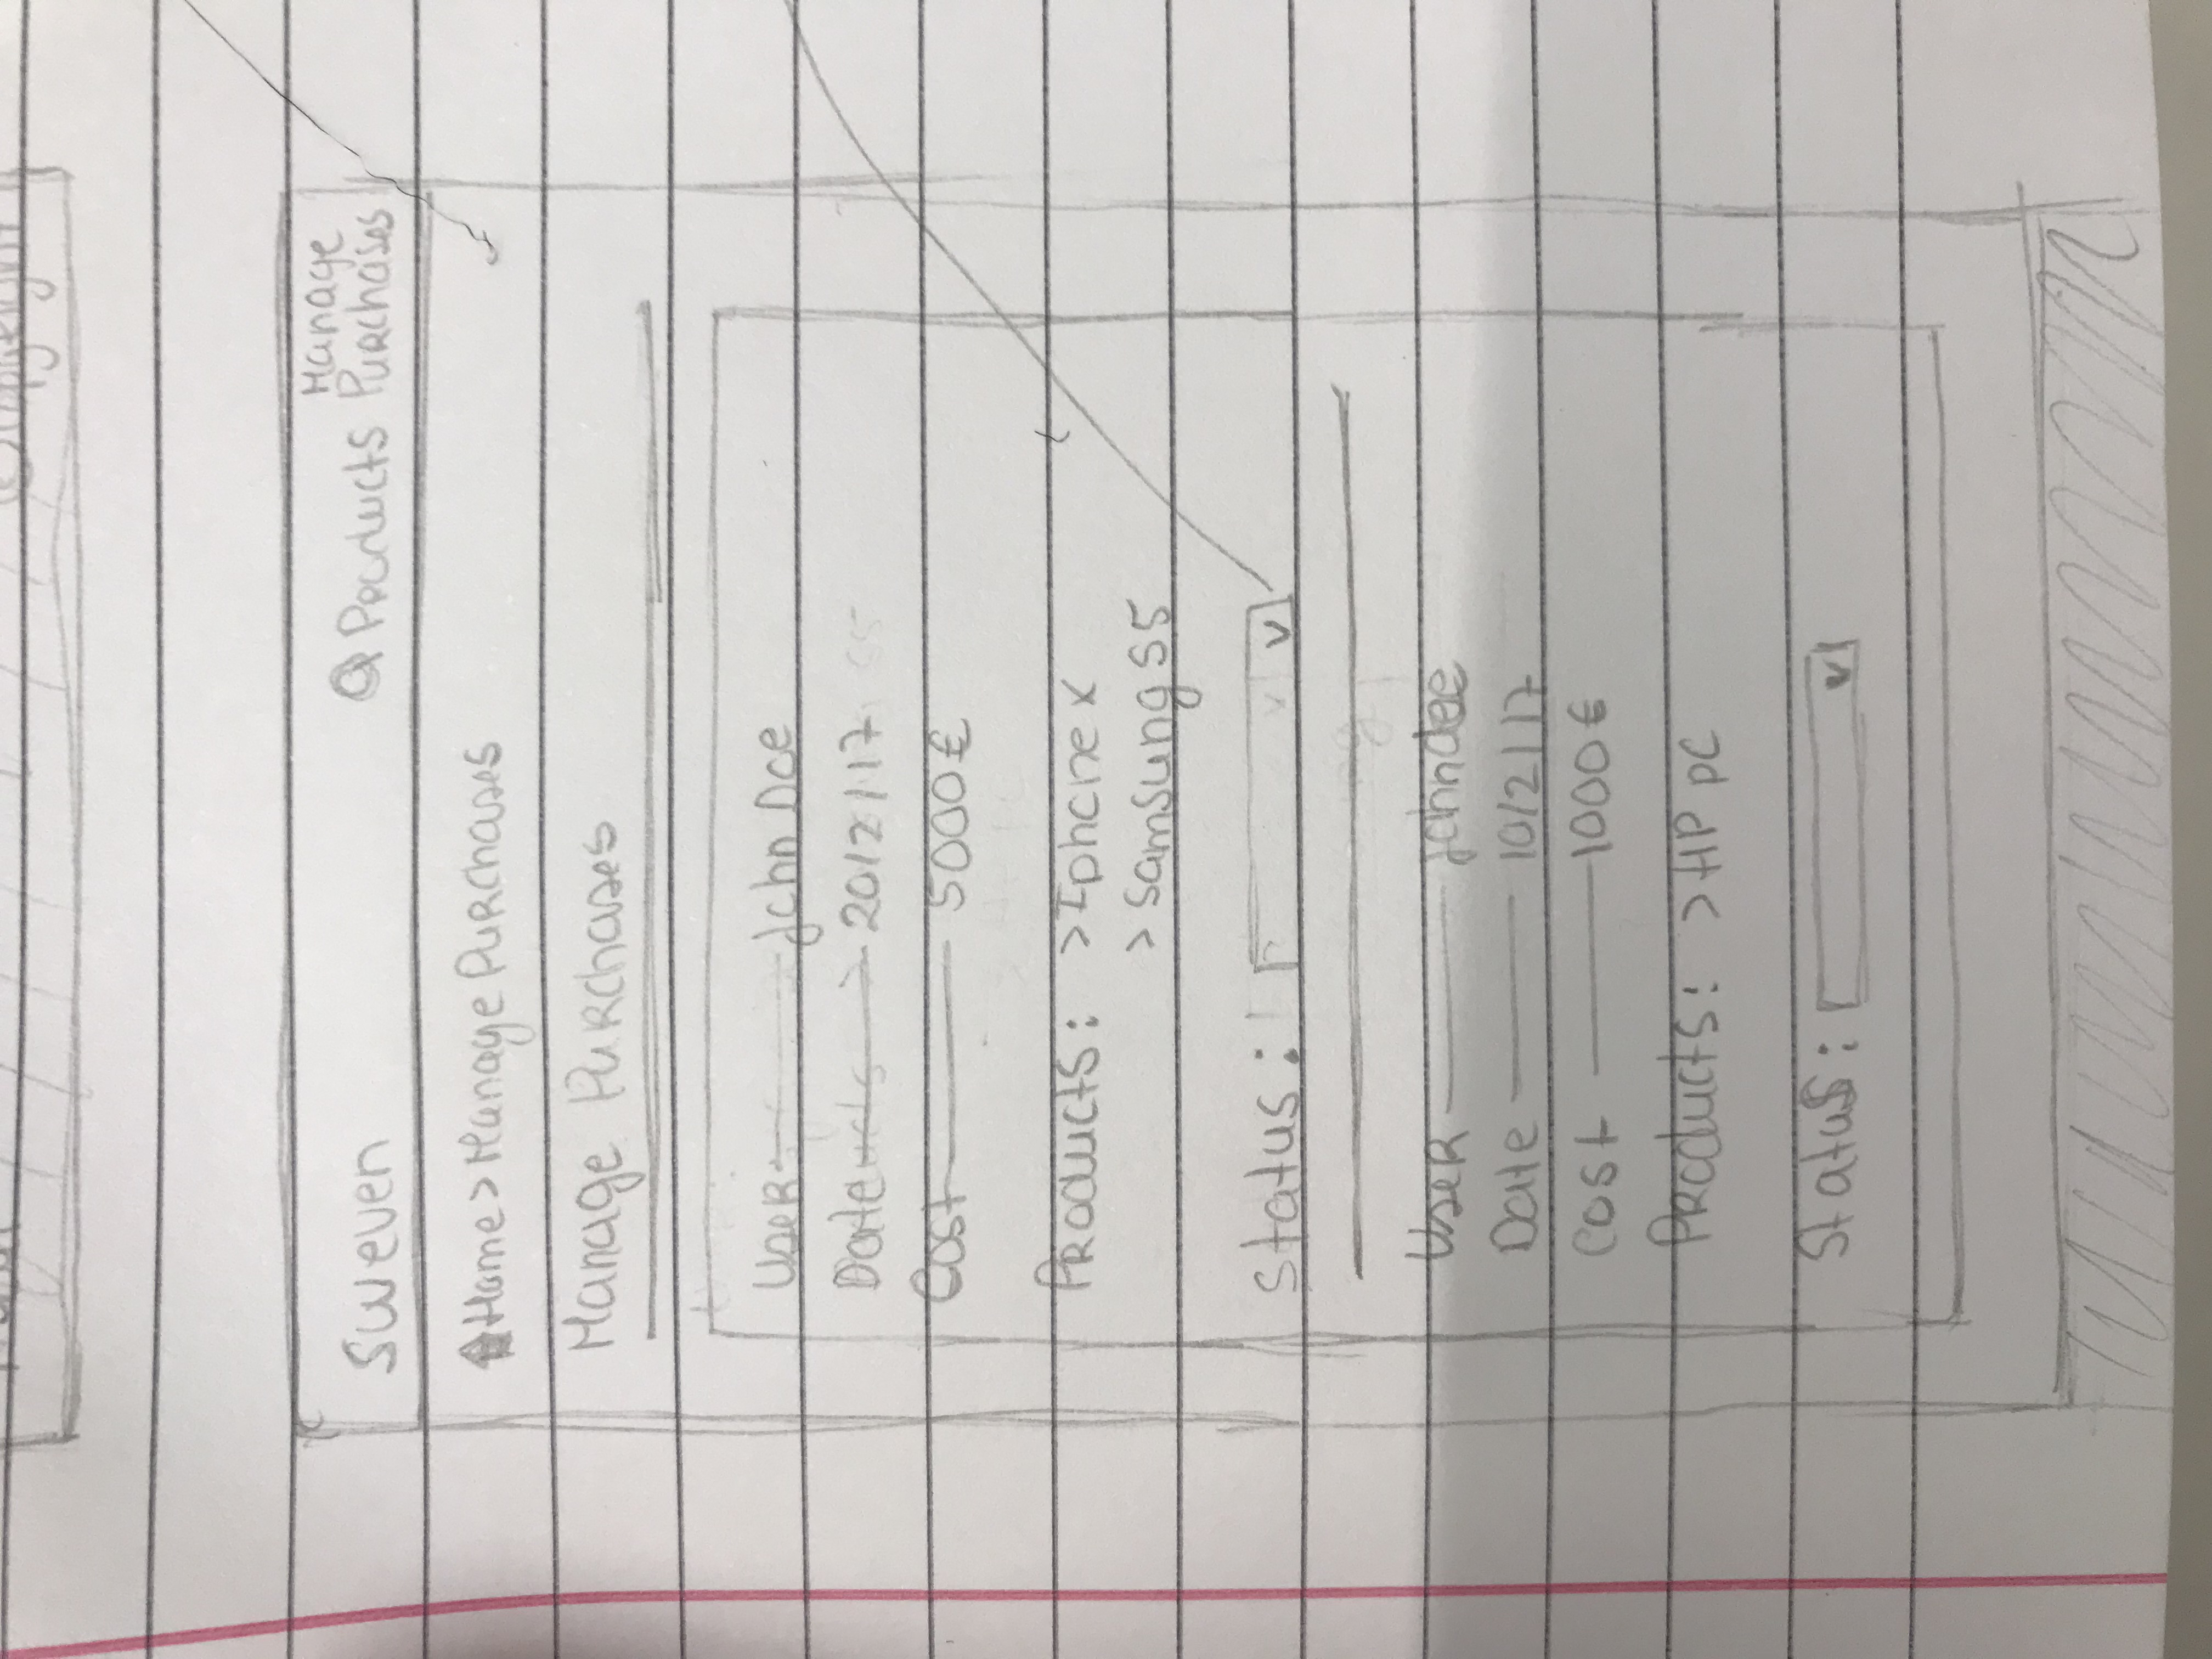 ©Copyright
Sweven
Products Manage Purchases
Home > Manage Purchases
Manage Purchases
User John Doe
Date 20/2/17
Cost 5000€
Products: >Iphone x
> Samsung S5
Status: v
User john doe
Date 10/2/17
Cost 1000€
Products: >HP pc
Status: v